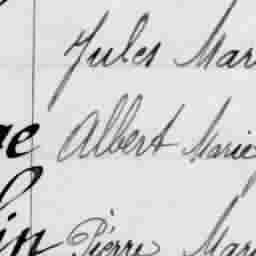 Jules Mar
ne Albert Marie
lin Pierre Mar